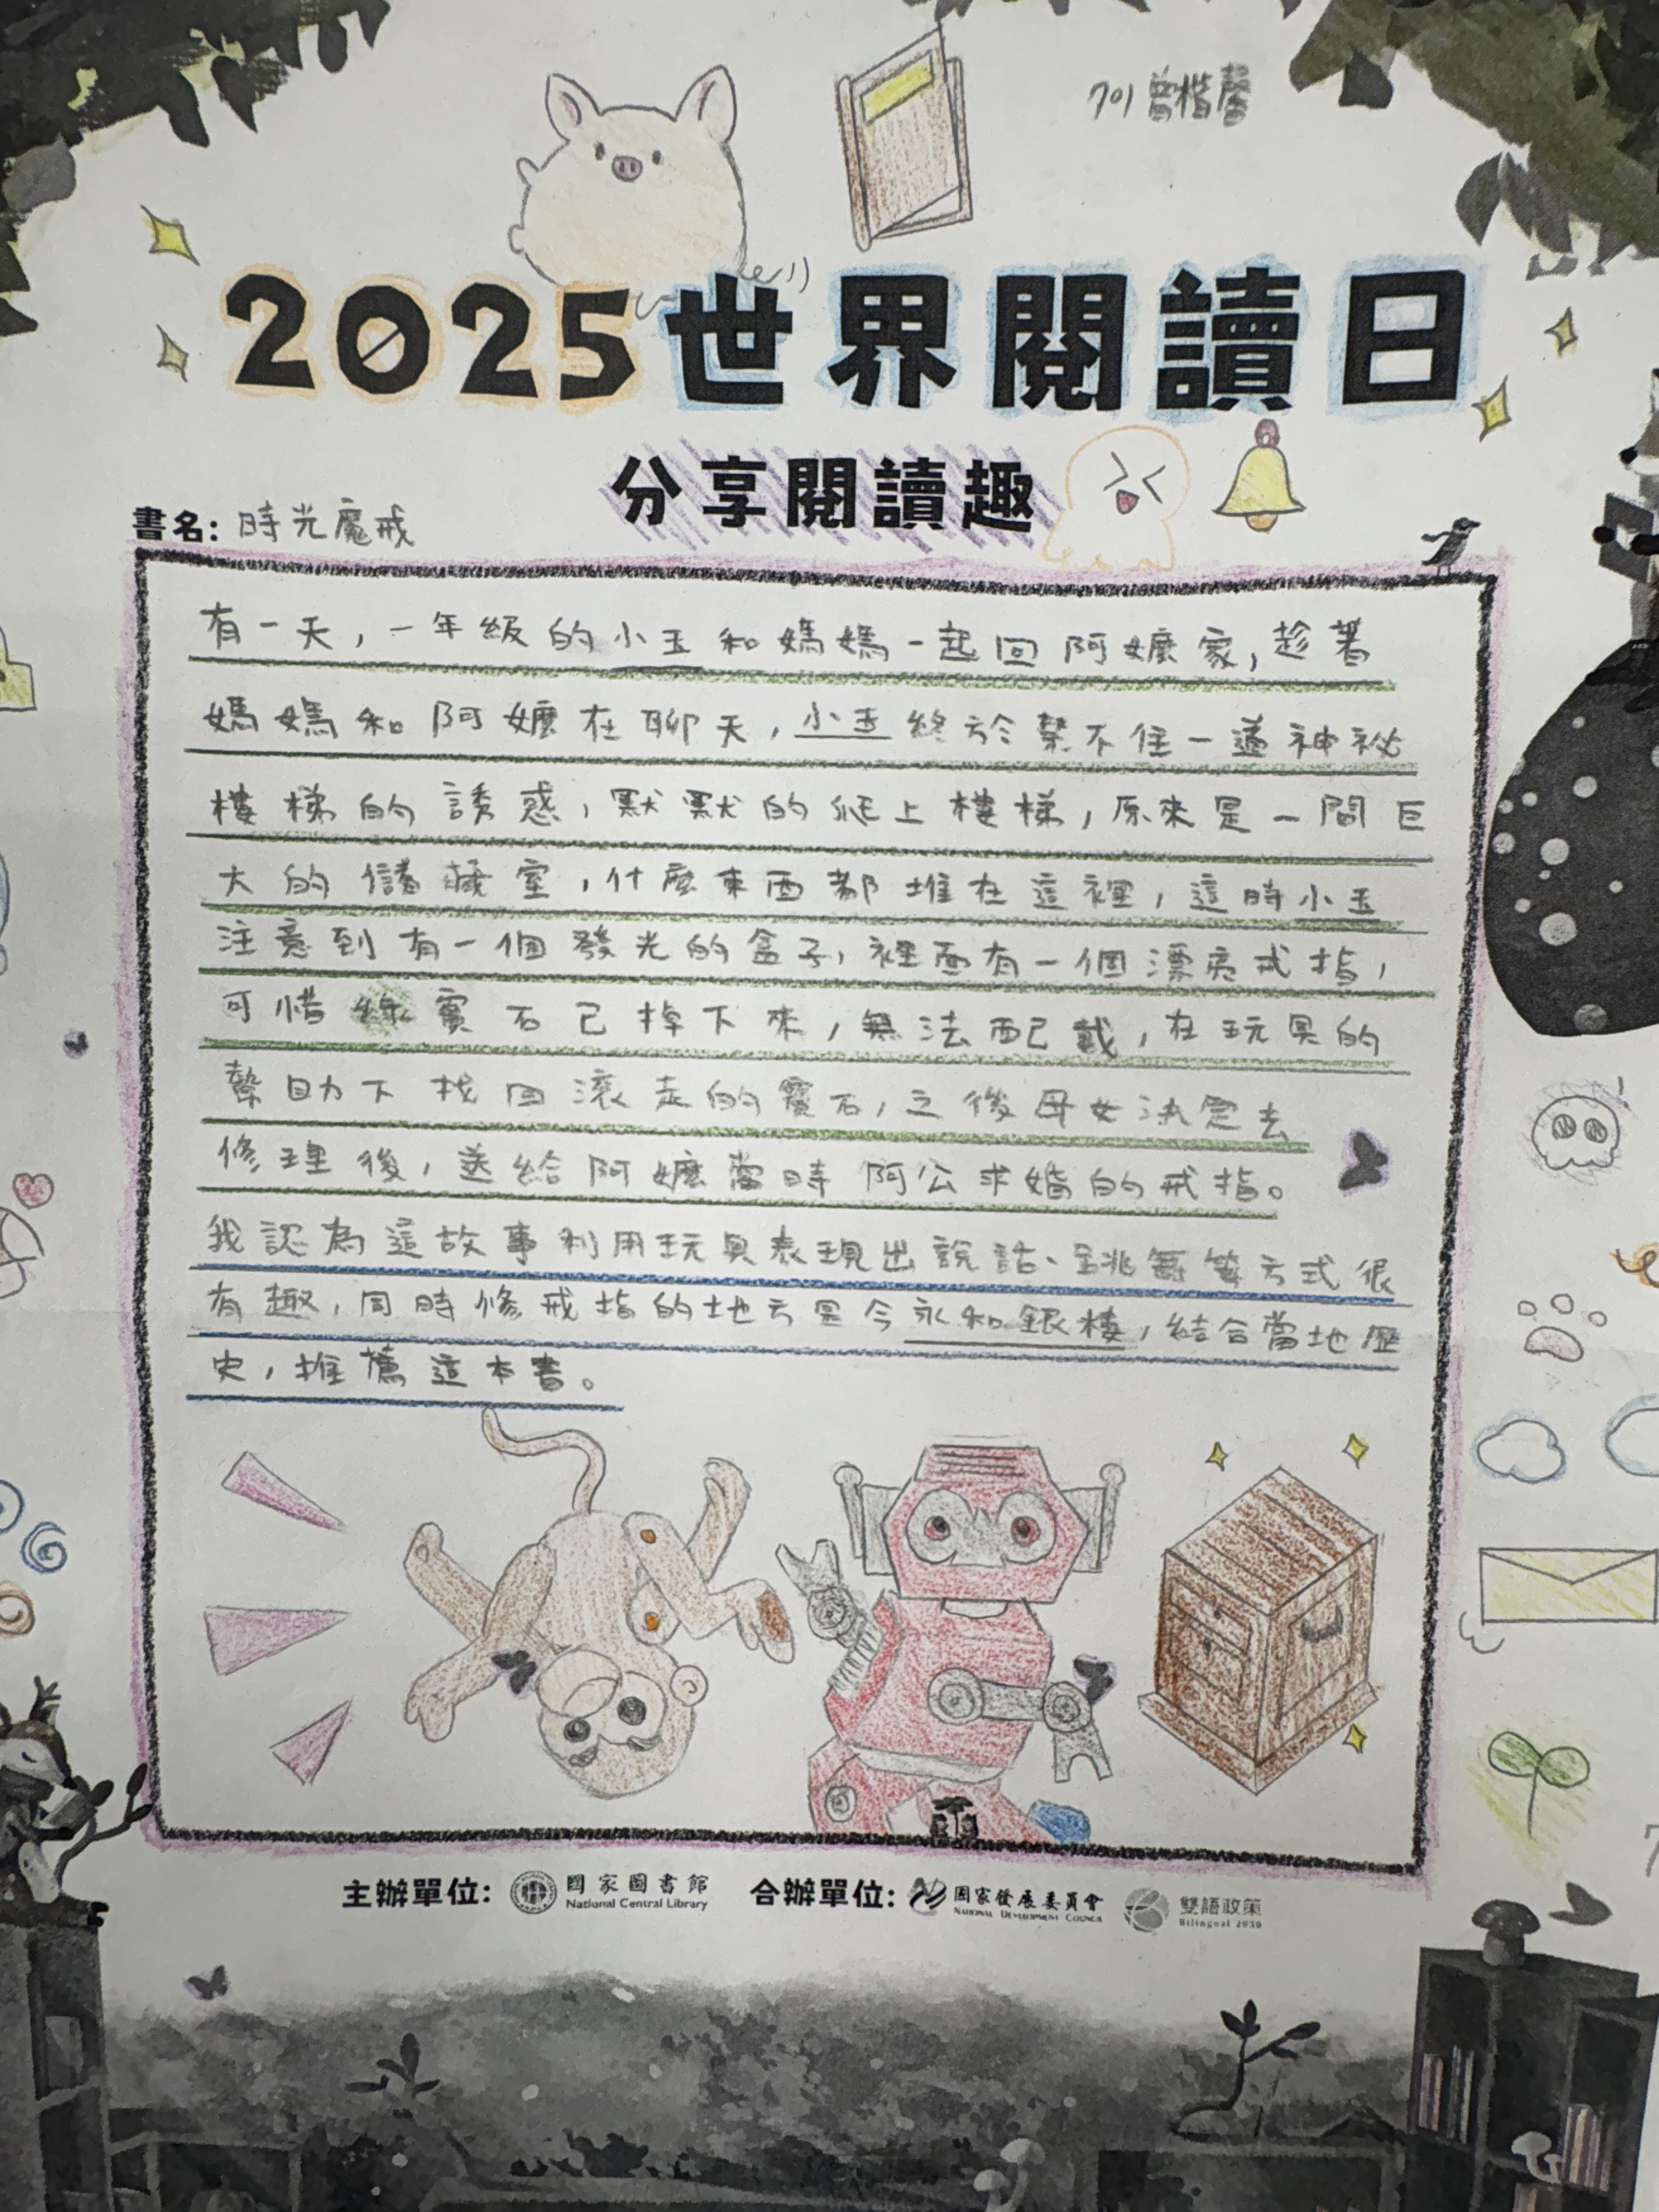 701 曾楷馨
2025世界閱讀日
分享閱讀趣
書名：時光魔戒
有一天，一年級的小玉和媽媽一起回阿嬤家，趁著
媽媽和阿嬤在聊天，小玉終於禁不住一道神祕
樓梯的誘惑，默默的爬上樓梯，原來是一間巨
大的儲藏室，什麼東西都堆在這裡，這時小玉
注意到有一個發光的盒子，裡面有一個漂亮戒指，
可惜綠寶石已掉下來，無法配戴，在玩具的
幫助下找回滾走的寶石，之後母女決定去
修理後，送給阿嬤當時阿公求婚的戒指。
我認為這故事利用玩具表現出說話、跳舞等方式很
有趣，同時修戒指的地方是今永和銀樓，結合當地歷
史，推薦這本書。
主辦單位：國家圖書館 National Central Library 合辦單位：國家發展委員會 NATIONAL DEVELOPMENT COUNCIL 雙語政策 Bilingual 2030